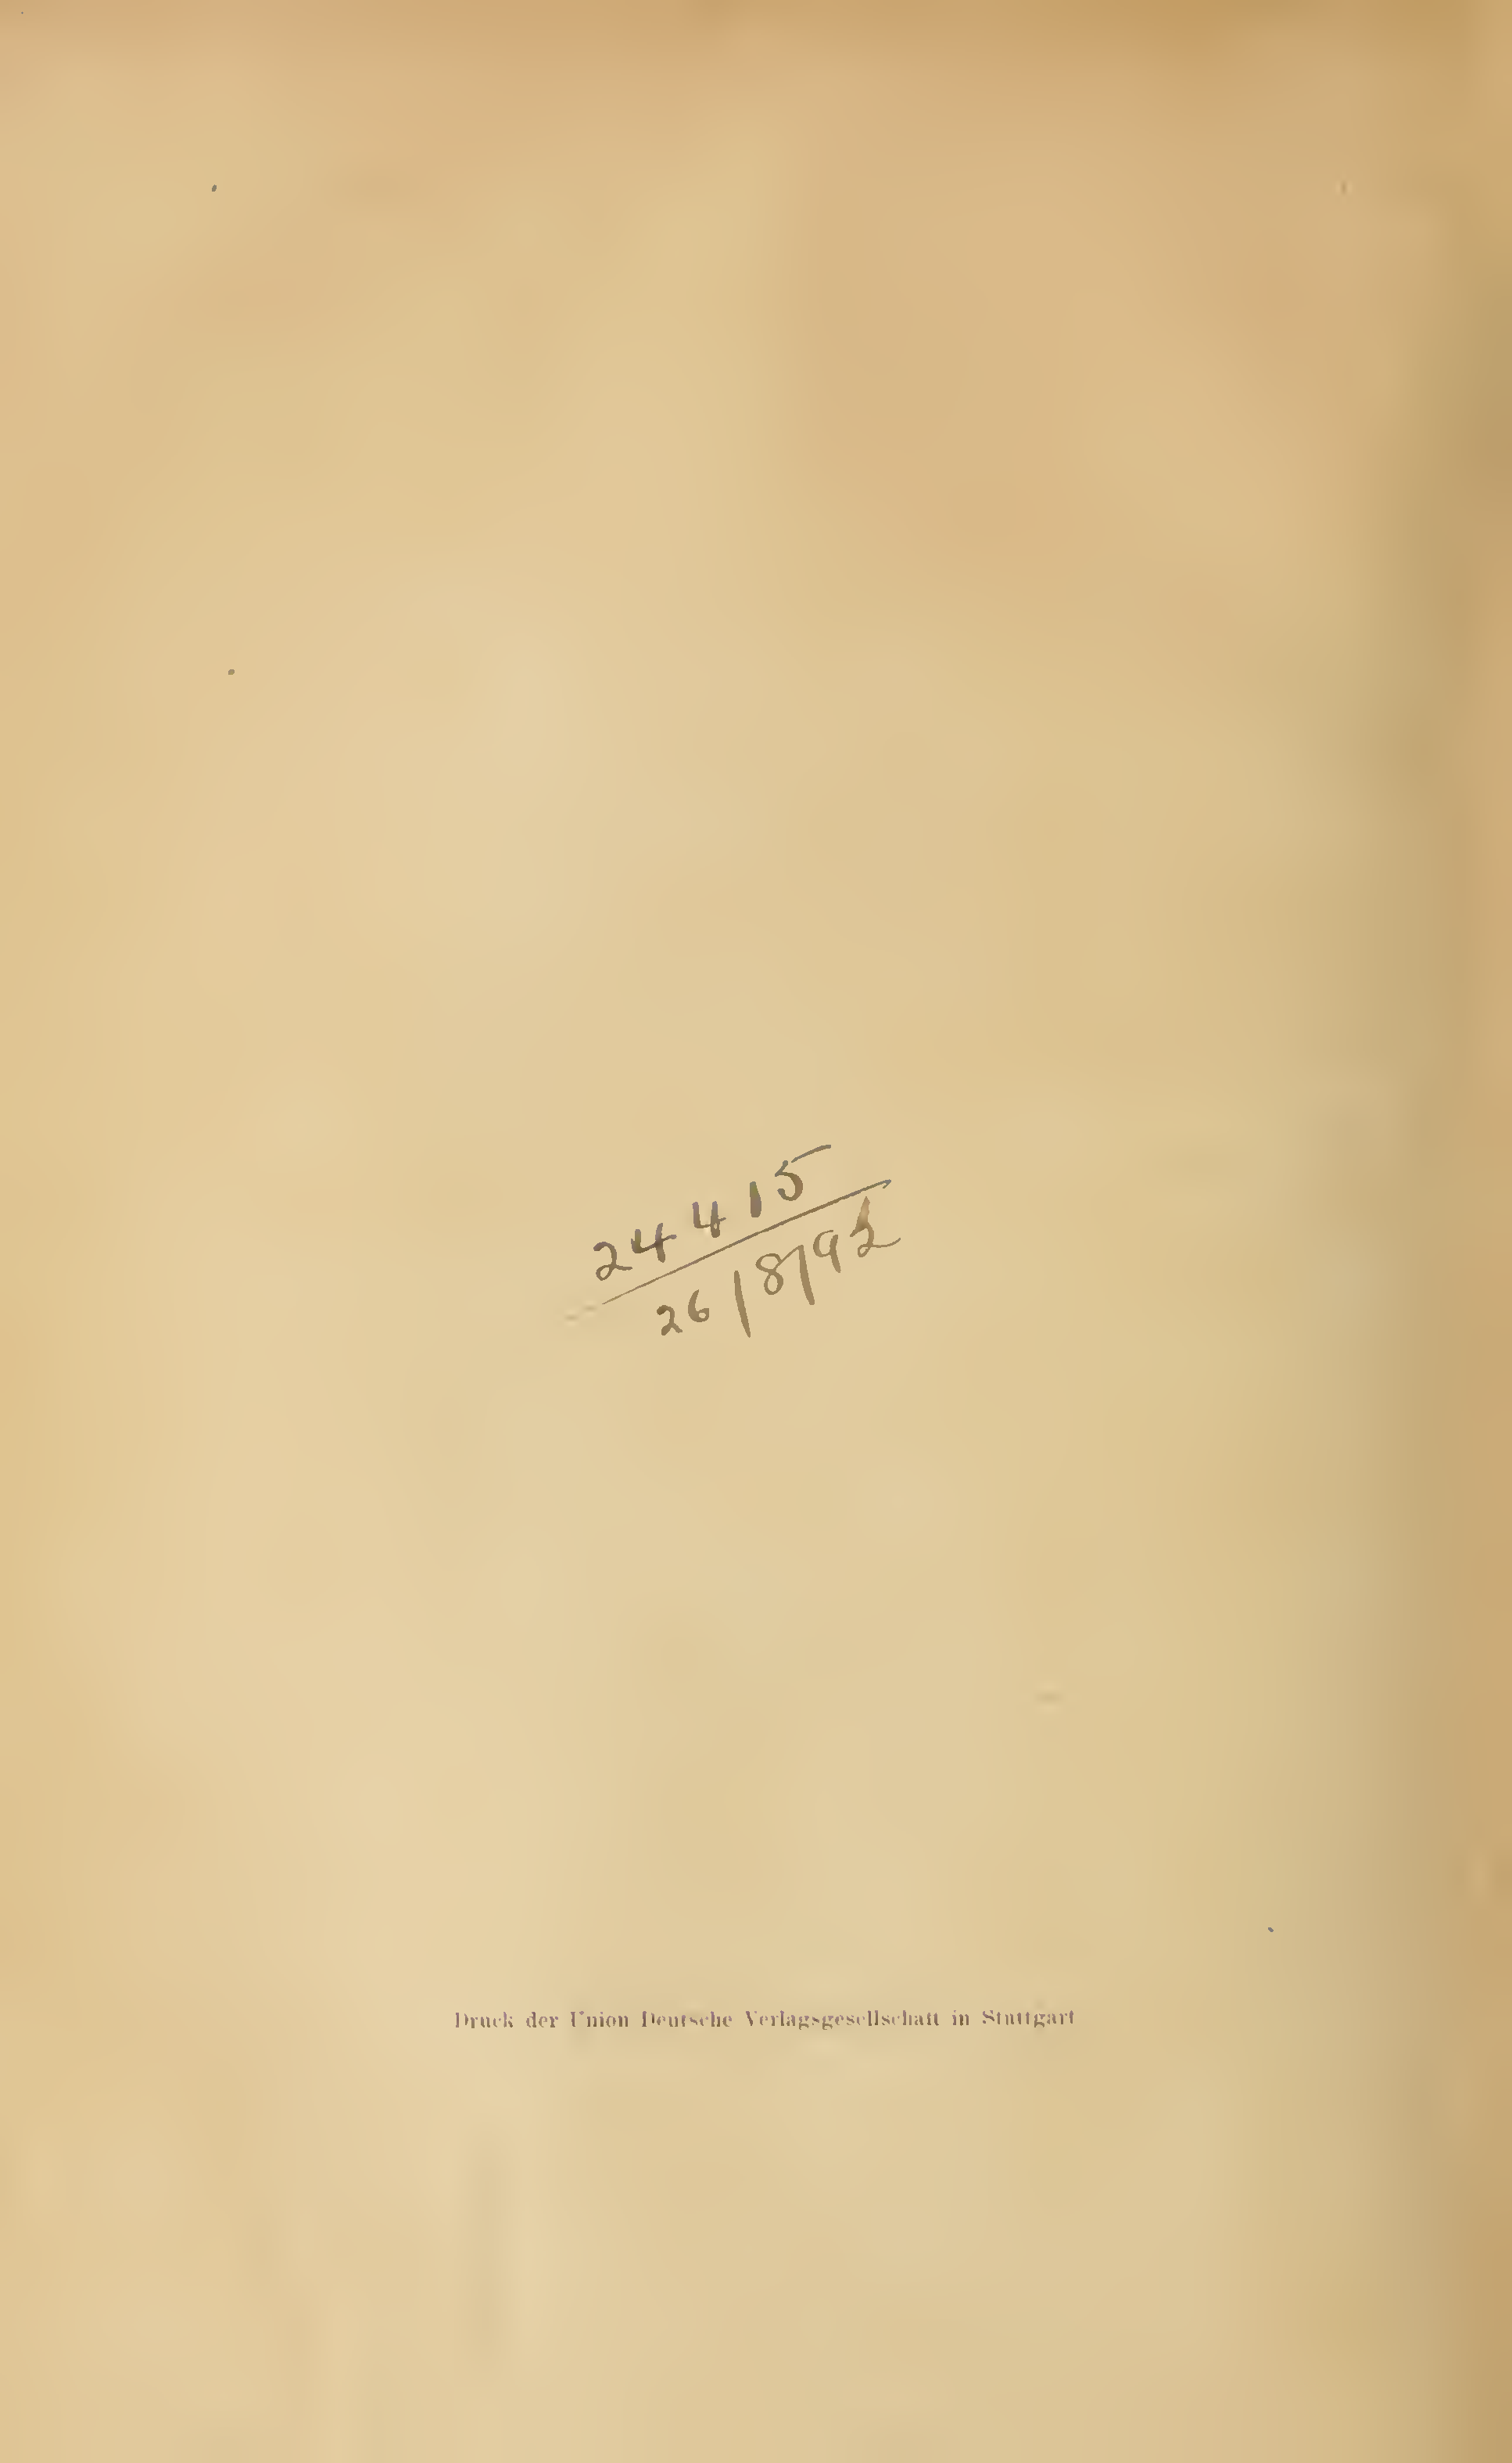 24415
26/8/92
Druck der Union Deutsche Verlagsgesellschaft in Stuttgart